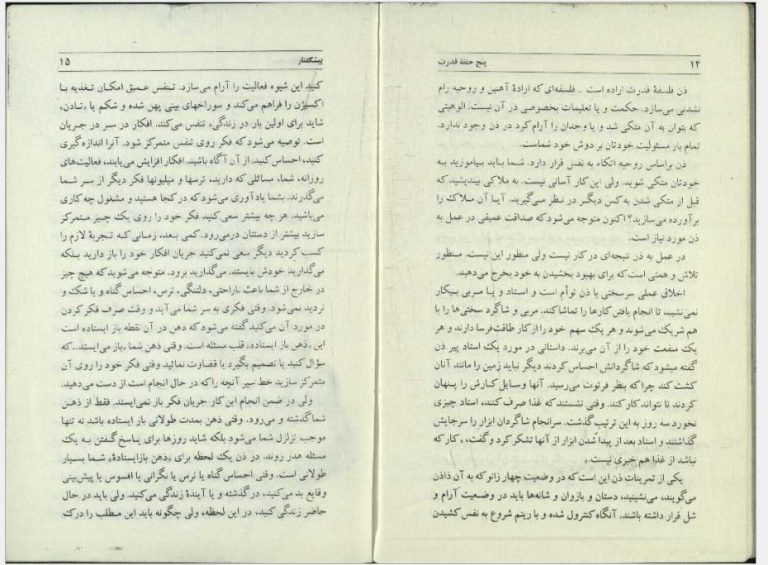 ۱۴ پنج حلقهٔ قدرت
ذن فلسفهٔ قدرت اراده است ـ فلسفه‌ای که ارادهٔ آهنین و روحیه رام
نشدنی می‌سازد. حکمت و یا تعلیمات بخصوصی در آن نیست. الوهیتی
که بتوان به آن متکی شد و یا وجدان را آرام کرد در ذن وجود ندارد.
تمام بار مسئولیت خودتان بر دوش خود شماست.
ذن براساس روحیه اتکاء به نفس قرار دارد. شما باید بیاموزید به
خودتان متکی شوید. ولی این کار آسانی نیست. به ملاکی بیندیشید که
قبل از متکی شدن به کس دیگر در نظر می‌گیرید. آیا آن ملاک را
برآورده می‌سازید؟ اکنون متوجه می‌شود که صداقت عمیقی در عمل به
ذن مورد نیاز است.
در عمل به ذن نتیجه‌ای در کار نیست ولی منظور این نیست. منظور
تلاش و همتی است که برای بهبود بخشیدن به خود بخرج می‌دهید.
اخلاق عملی سرسختی با ذن توأم است و استاد و یا مربی بیکار
نمی‌نشیند تا انجام یافتن کارها را تماشا کند. مربی و شاگرد سختی‌ها را با
هم شریک می‌شوند و هر یک سهم خود را از کار طاقت‌فرسا دارند و هر
یک منفعت خود را از آن می‌برند. داستانی در مورد یک استاد پیر ذن
گفته میشود که شاگردانش احساس کردند دیگر نباید زمین را مانند آنان
کشت کند چرا که بنظر فرتوت می‌رسید. آنها وسایل کارش را پنهان
کردند تا نتواند کار کند. وقتی نشستند که غذا صرف کنند، استاد چیزی
نخورد سه روز به این ترتیب گذشت. سرانجام شاگردان ابزار را سرجایش
گذاشتند و استاد بعد از پیدا شدن ابزار از آنها تشکر کرد و گفت، «کار که
نباشد از غذا هم خبری نیست.»
یکی از تمرینات ذن این است که در وضعیت چهار زانو که به آن ذاذن
می‌گویند، می‌نشینید، دستان و بازوان و شانه‌ها باید در وضعیت آرام و
شل قرار داشته باشند. آنگاه کنترول شده و با ریتم شروع به نفس کشیدن
پیشگفتار ۱۵
کنید این شیوه فعالیت را آرام می‌سازد. تنفس عمیق امکان تغذیه با
اکسیژن را فراهم می‌کند و سوراخهای بینی پهن شده و شکم یا «تادن»،
شاید برای اولین بار در زندگی، تنفس می‌کند. افکار در سر در جریان
است. توصیه می‌شود که فکر روی تنفس متمرکز شود. آنرا اندازه گیری
کنید، احساس کنید، از آن آگاه باشید. افکار افزایش می‌یابند، فعالیت‌های
روزانه، شما، مسائلی که دارید، ترسها و میلیونها فکر دیگر از سر شما
می‌گذرند. بشما یادآوری می‌شود که در کجا هستید و مشغول چه کاری
می‌باشید. هر چه بیشتر سعی کنید فکر خود را روی یک چیز متمرکز
سازید بیشتر از دستتان درمی‌رود. کمی بعد، زمانی که تجربهٔ لازم را
کسب کردید دیگر سعی نمی‌کنید جریان افکار خود را باز دارید بلکه
می‌گذارید خودش بایستد. می‌گذارید برود. متوجه می‌شوید که هیچ چیز
در خارج از شما باعث ناراحتی، دلتنگی، ترس، احساس گناه و یا شک و
تردید نمی‌شود. وقتی فکری به سر شما می‌آید و وقت صرف فکر کردن
در مورد آن می‌کنید گفته می‌شود که ذهن در آن نقطه باز ایستاده است
این «ذهن باز ایستاده»، قلب مسئله است. وقتی ذهن شما «باز می‌ایستد» که
سؤال کنید یا تصمیم بگیرد یا قضاوت نمائید وقتی فکر خود را روی آن
متمرکز سازید خط سیر آنچه را که در حال انجام است از دست می‌دهید.
ولی در ضمن انجام این کار جریان فکر باز نمی‌ایستد. فقط از ذهن
شما گذشته و می‌رود. وقتی ذهن بمدت طولانی باز ایستاده باشد نه تنها
موجب تزلزل شما می‌شود بلکه شاید روزها برای پاسخ گفتن به یک
مسئله هدر روند. در ذن یک لحظه برای «ذهن بازایستادهٔ» شما بسیار
طولانی است. وقتی احساس گناه یا ترس یا نگرانی یا افسوس یا پیش‌بینی
وقایع بد می‌کنید، در گذشته و یا آیندهٔ زندگی می‌کنید. ولی باید در حال
حاضر زندگی کنید، در این لحظه، ولی چگونه باید این مطلب را درک